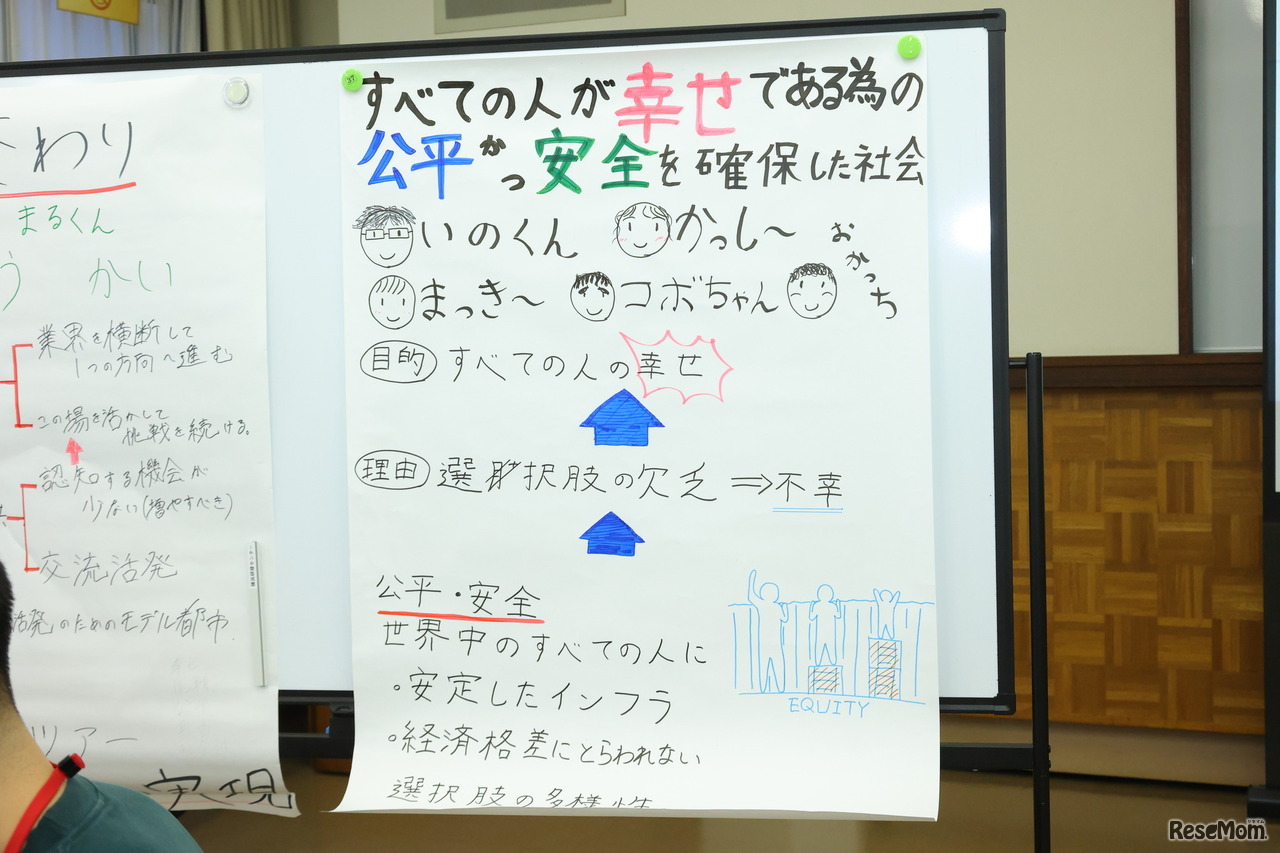 わり
まるくん
う かい
業界を横断して
1つの方向へ進む
この場を活かして
挑戦を続ける。
認知する機会が
少ない(増やすべき)
交流活発
活発のためのモデル都市
ツアー
実現
すべての人が幸せである為の
公平かつ安全を確保した社会
いのくん かっし〜 おかっち
まっき〜 コボちゃん
目的 すべての人の幸せ
理由 選択肢の欠乏 ⇒不幸
公平・安全
世界中のすべての人に
。安定したインフラ
。経済格差にとらわれない
選択肢の多様性
EQUITY
ReseMom